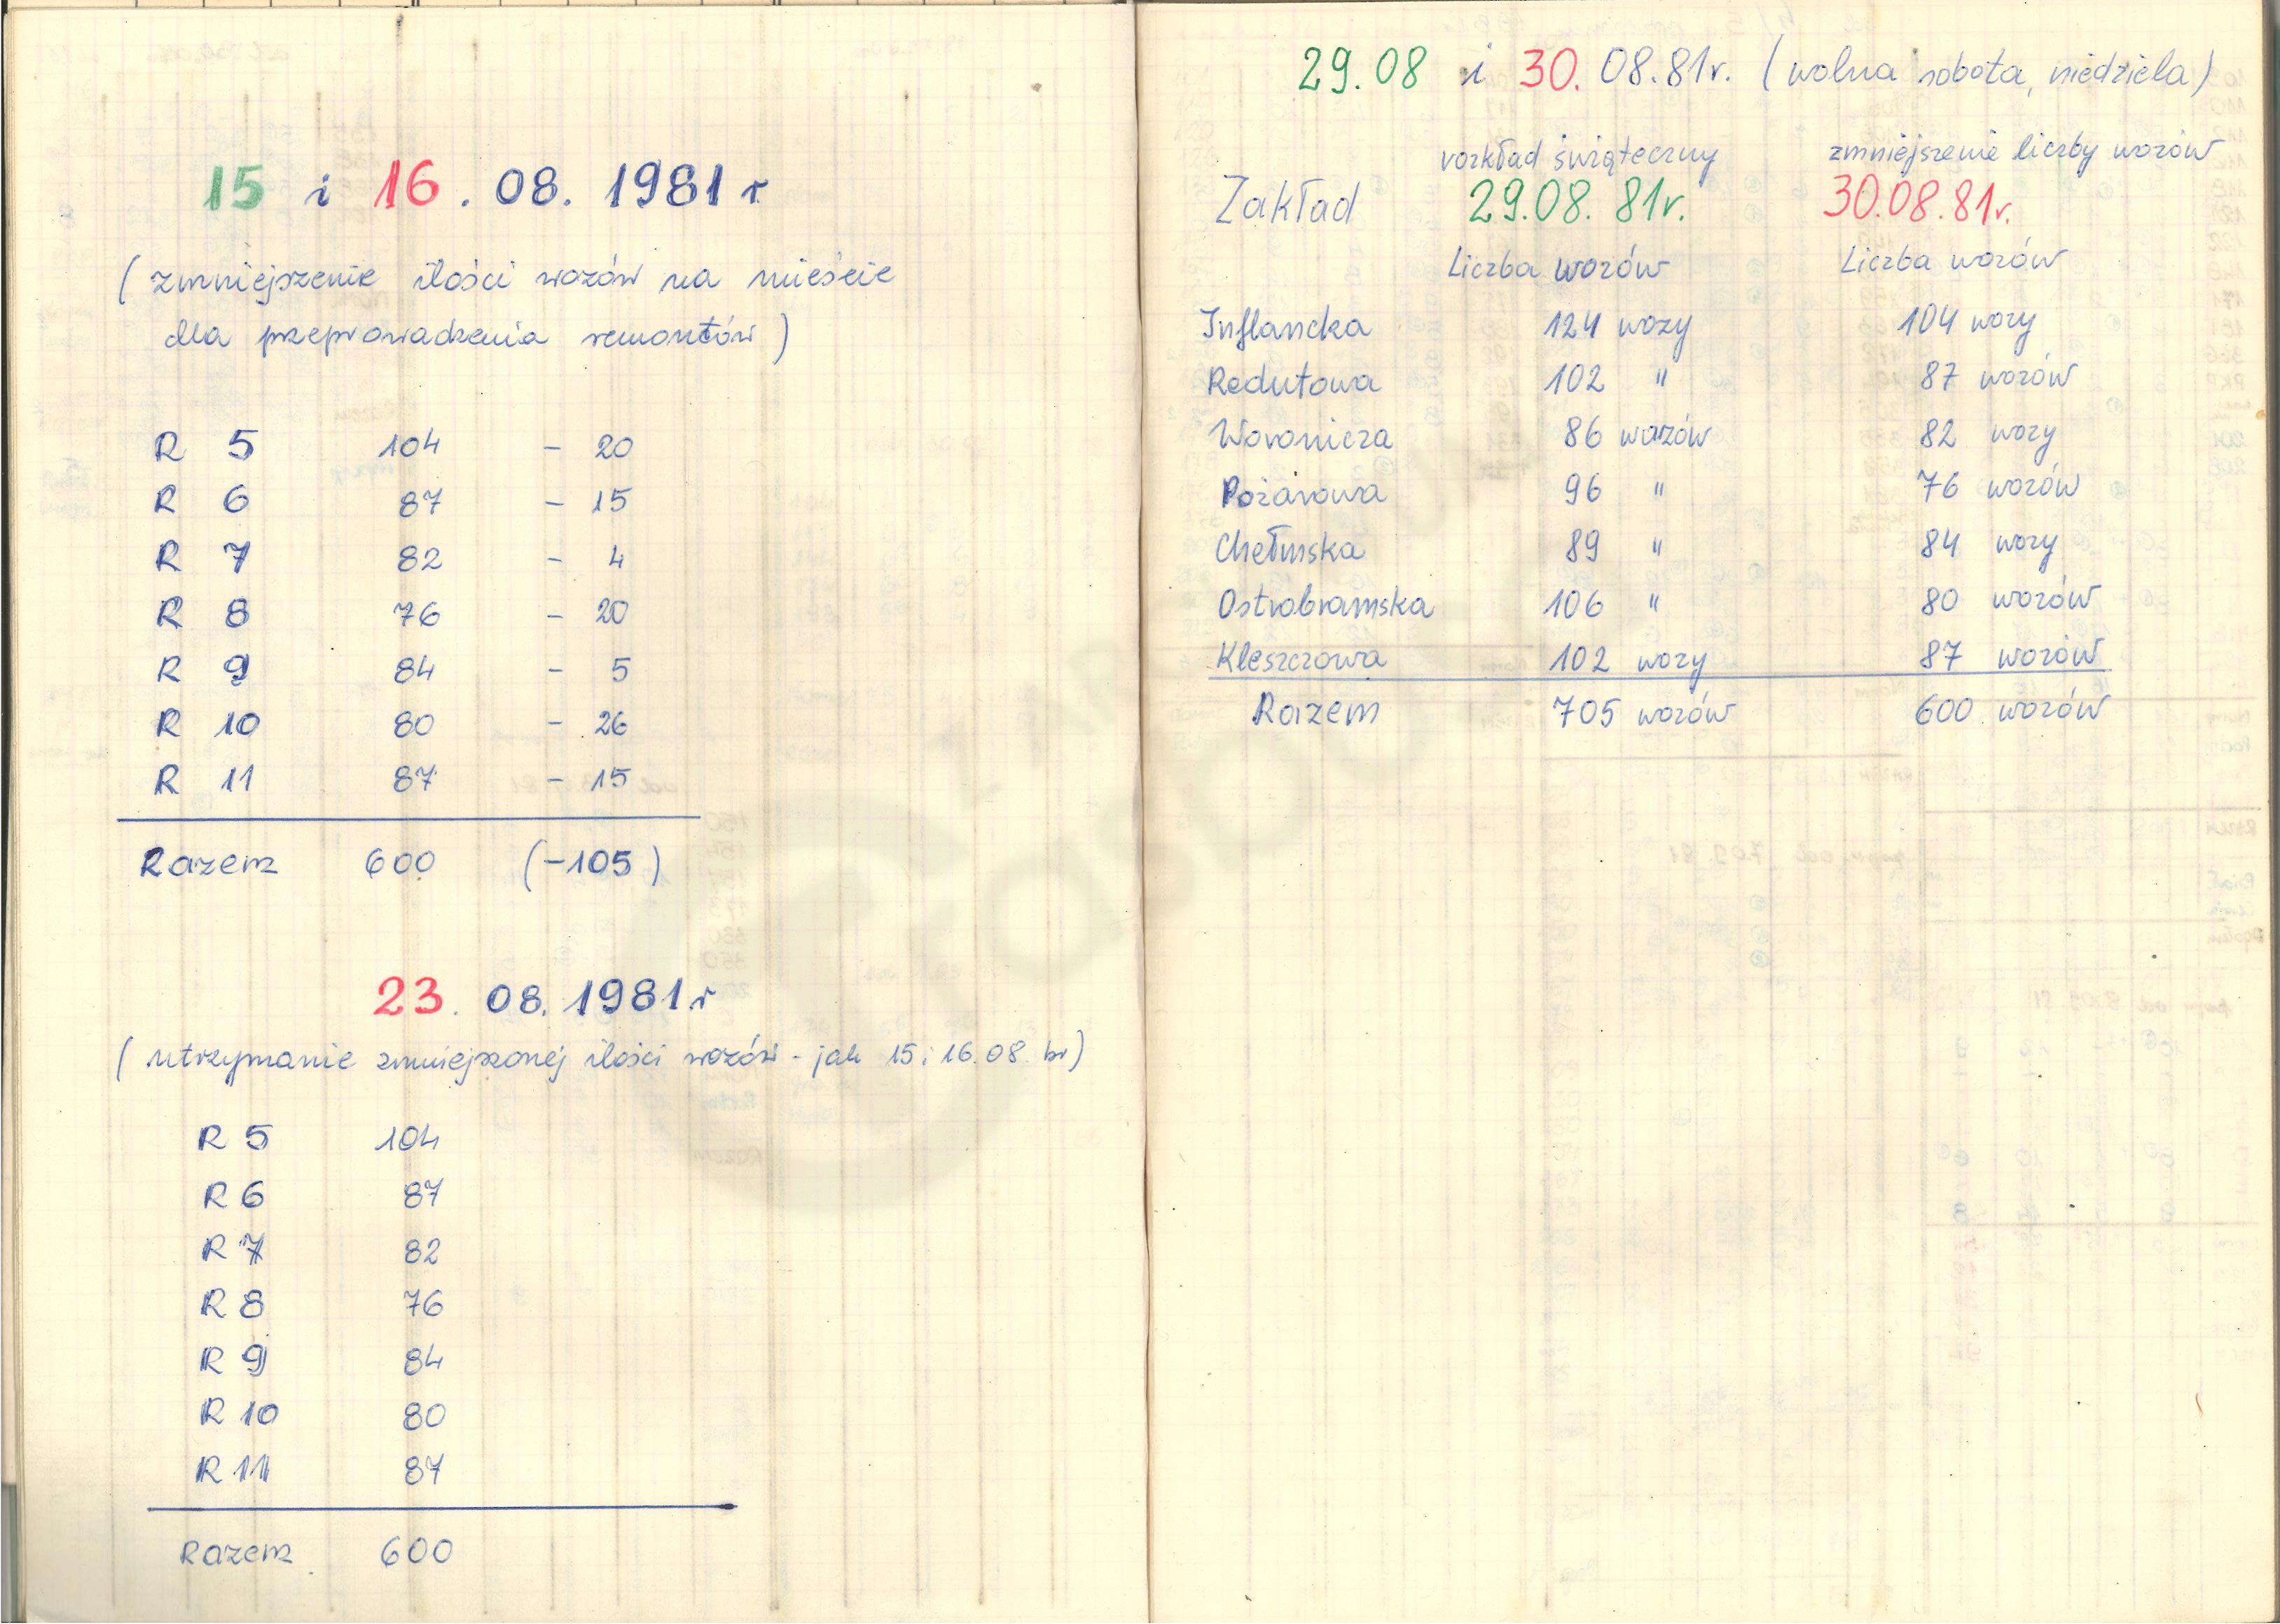 15 i 16. 08. 1981 r
(zmniejszenie ilości wozów na mieście
dla przeprowadzenia remontów)
R 5 104 - 20
R 6 87 - 15
R 7 82 - 4
R 8 76 - 20
R 9 84 - 5
R 10 80 - 26
R 11 87 - 15
Razem 600 (-105)
23. 08. 1981 r
(utrzymanie zmniejszonej ilości wozów - jak 15 i 16.08. br)
R 5 104
R 6 87
R 7 82
R 8 76
R 9 84
R 10 80
R 11 87
Razem 600
29.08 i 30.08.81r. (wolna sobota, niedziela)
rozkład świąteczny zmniejszenie liczby wozów
Zakład 29.08.81r. 30.08.81r.
Liczba wozów Liczba wozów
Inflancka 124 wozy 104 wozy
Redutowa 102 " 87 wozów
Woronicza 86 wozów 82 wozy
Pożarowa 96 " 76 wozów
Chełmska 89 " 84 wozy
Ostrobramska 106 " 80 wozów
Kleszczowa 102 wozy 87 wozów
Razem 705 wozów 600 wozów